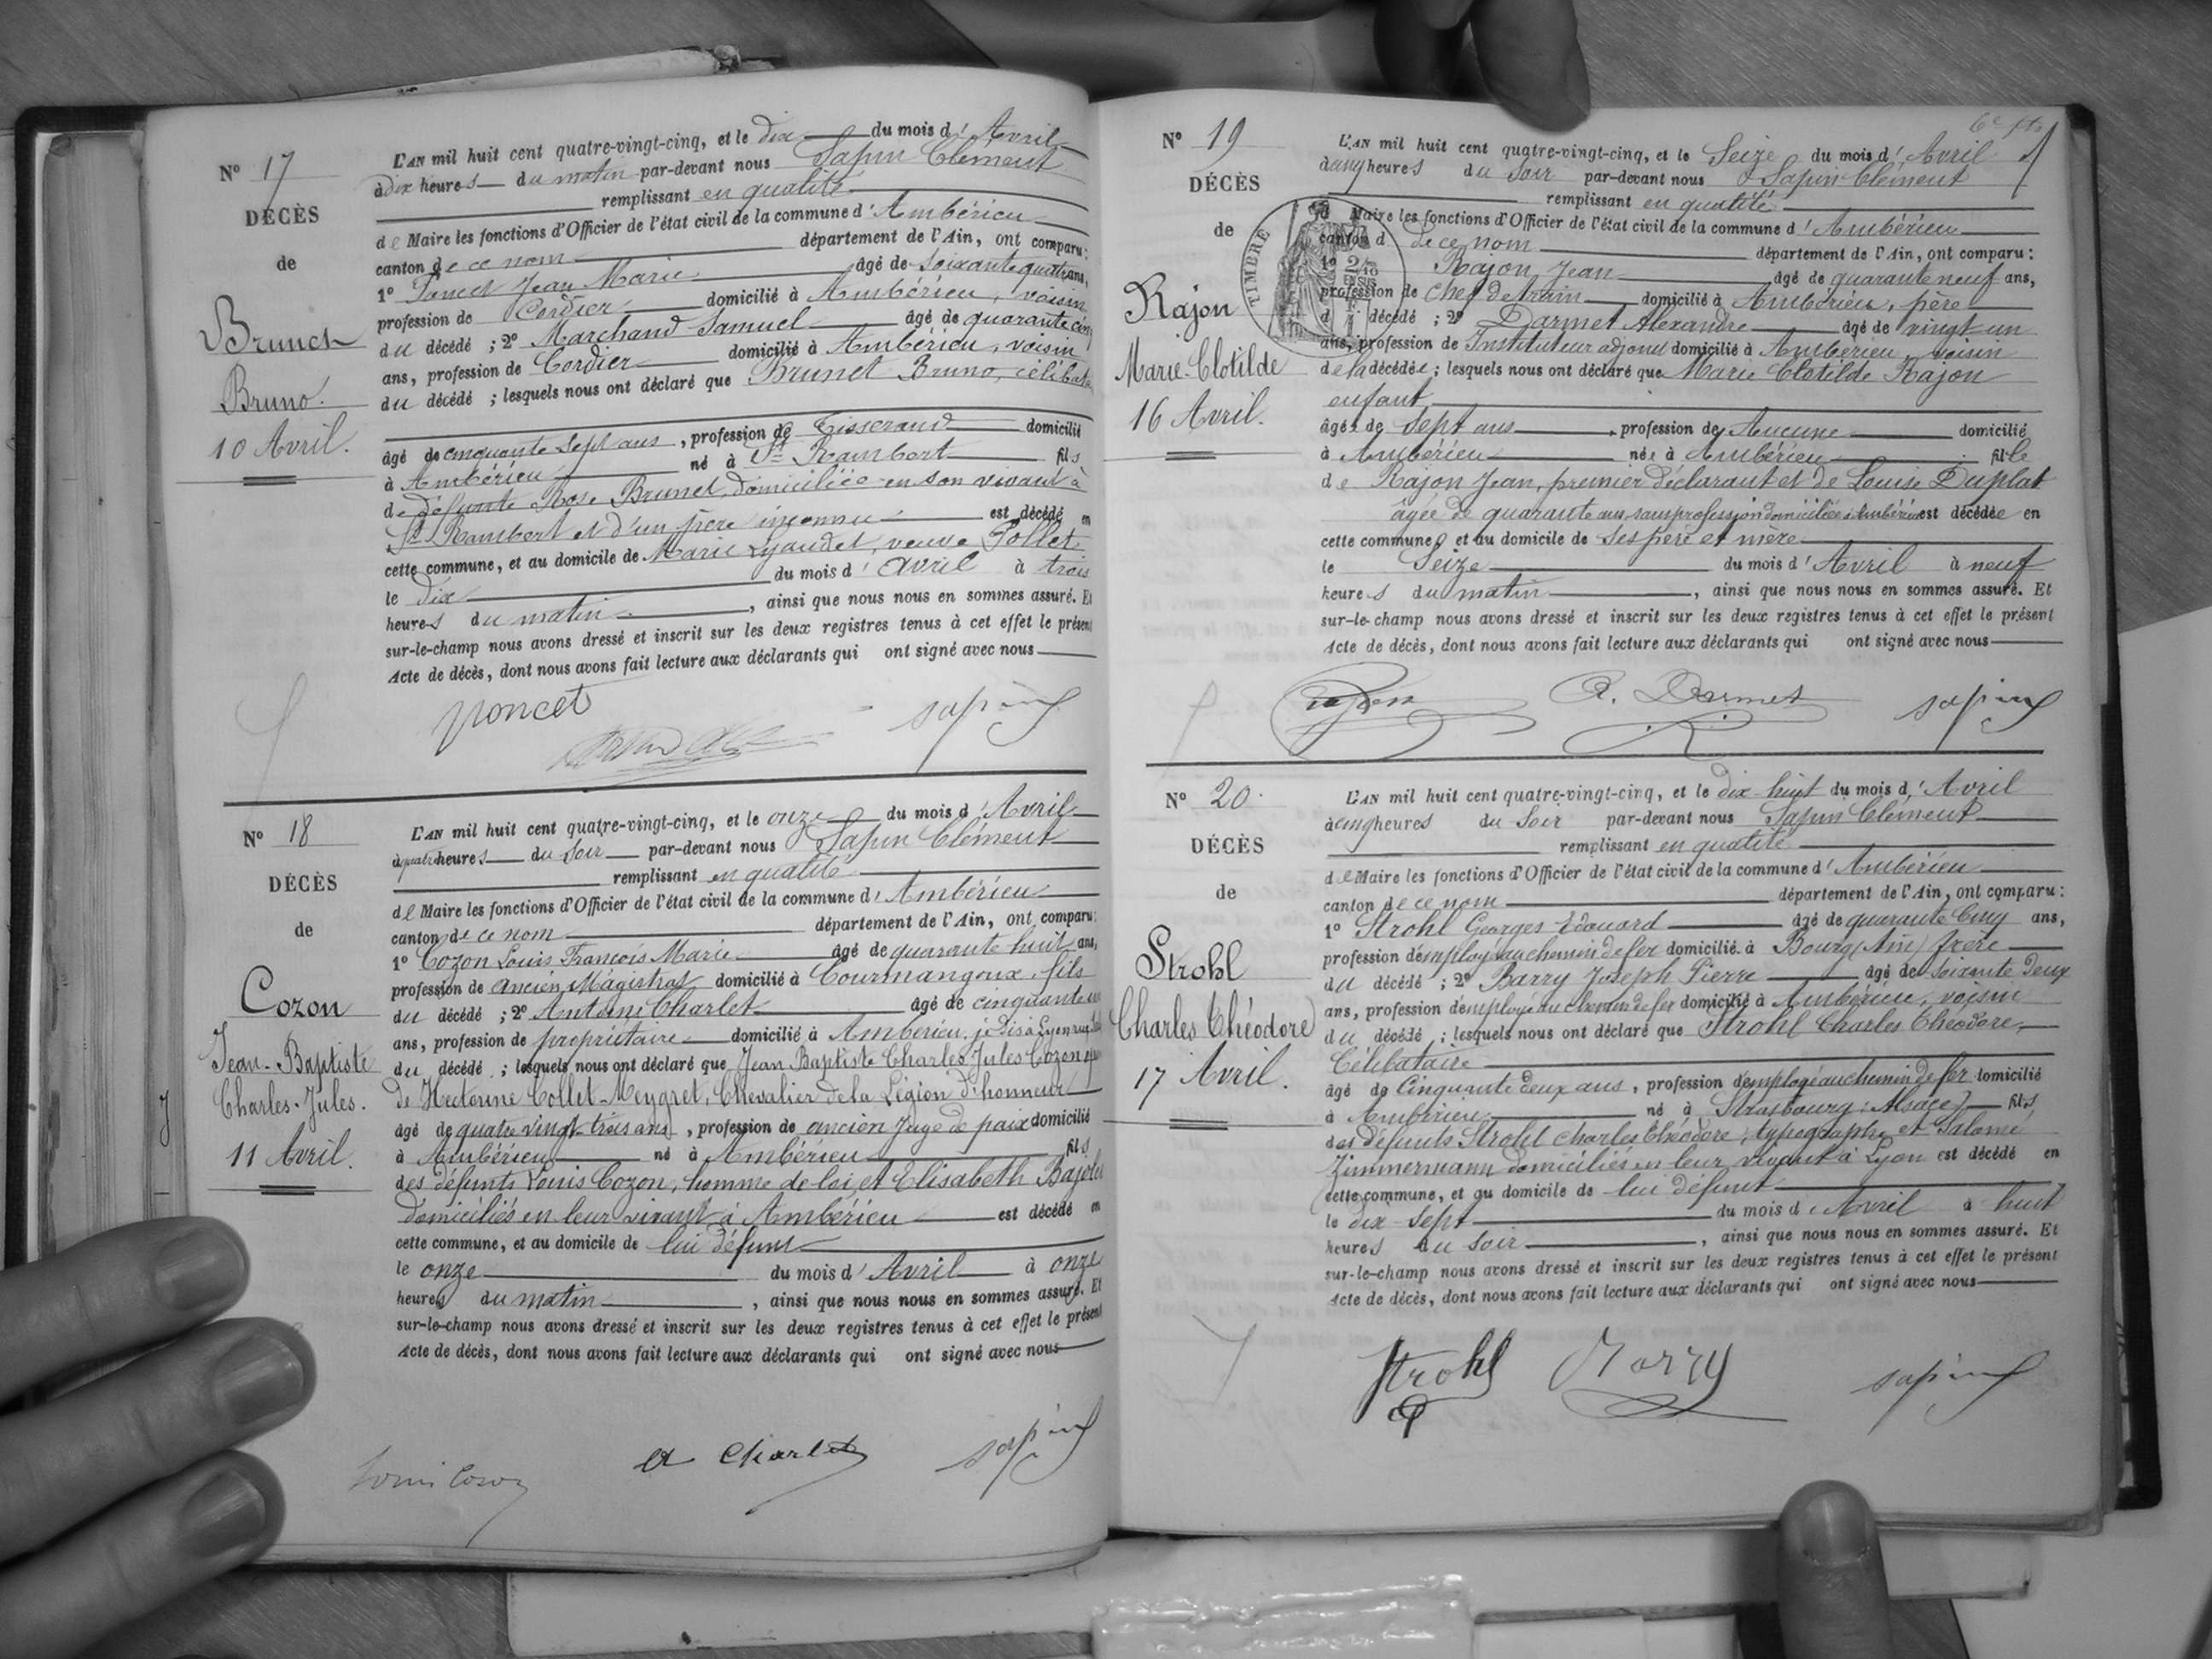 N° 17
DÉCÈS
de
Brunet
Bruno.
10 Avril.
L'AN mil huit cent quatre-vingt-cinq, et le dix du mois d'Avril
à dix heures du matin par-devant nous Sapin Clément
remplissant en qualité
de Maire les fonctions d'Officier de l'état civil de la commune d'Ambérieu
canton de ce nom département de l'Ain, ont comparu:
1° Poncet Jean Marie âgé de soixante quatre ans,
profession de Cordier domicilié à Ambérieu, voisin
du décédé ; 2° Marchand Samuel âgé de quarante cinq
ans, profession de Cordier domicilié à Ambérieu, voisin
du décédé ; lesquels nous ont déclaré que Brunet Bruno,
âgé de cinquante sept ans, profession de Tisserand domicilié
à Ambérieu né à St Rambert fils
de défunte Rose Brunet, domiciliée en son vivant à
St Rambert et d'un père inconnu est décédé en
cette commune, et au domicile de Marie veuve Pollet
le dix du mois d'avril à trois
heures du matin, ainsi que nous nous en sommes assuré. Et
sur-le-champ nous avons dressé et inscrit sur les deux registres tenus à cet effet le présent
Acte de décès, dont nous avons fait lecture aux déclarants qui ont signé avec nous
poncet
sapin
N° 18
DÉCÈS
de
Cozon
Jean-Baptiste
Charles-Jules.
11 Avril.
L'AN mil huit cent quatre-vingt-cinq, et le onze du mois d'Avril
à quatre heures du soir par-devant nous Sapin Clément
remplissant en qualité
de Maire les fonctions d'Officier de l'état civil de la commune d'Ambérieu
canton de ce nom département de l'Ain, ont comparu:
1° Cozon Louis François Marie âgé de quarante huit ans,
profession de ancien Magistrat domicilié à Courmangoux, fils
du décédé ; 2° Antoine Charlet âgé de cinquante
ans, profession de propriétaire domicilié à Ambérieu,
du décédé ; lesquels nous ont déclaré que Jean Baptiste Charles Jules Cozon
de Hectorine Collet-Meygret, Chevalier de la Légion d'honneur
âgé de quatre vingt trois ans, profession de ancien juge de paix domicilié
à Ambérieu né à Ambérieu fils
des défunts Louis Cozon, homme de loi, et Elisabeth
domiciliés en leur vivant à Ambérieu est décédé en
cette commune, et au domicile de lui défunt
le onze du mois d'Avril à onze
heures du matin, ainsi que nous nous en sommes assuré. Et
sur-le-champ nous avons dressé et inscrit sur les deux registres tenus à cet effet le présent
Acte de décès, dont nous avons fait lecture aux déclarants qui ont signé avec nous
Louis Cozon
A Charlet
sapin
N° 19
DÉCÈS
de
Rajon
Marie-Clotilde
16 Avril.
TIMBRE
L'AN mil huit cent quatre-vingt-cinq, et le Seize du mois d'Avril
à cinq heures du soir par-devant nous Sapin Clément
remplissant en qualité
d Maire les fonctions d'Officier de l'état civil de la commune d'Ambérieu
canton d de ce nom département de l'Ain, ont comparu:
1° Rajon Jean âgé de quarante neuf ans,
profession de Chef de train domicilié à Ambérieu, père
d décédé ; 2° Darmet Alexandre âgé de vingt un
ans, profession de Instituteur adjoint domicilié à Ambérieu, voisin
de la décédée ; lesquels nous ont déclaré que Marie Clotilde Rajon
enfant
âgée de Sept ans, profession de Aucune domicilié
à Ambérieu née à Ambérieu fille
de Rajon Jean, premier déclarant et de Louise Duplat
âgée de quarante ans, sans profession domiciliée à Ambérieu est décédée en
cette commune, et au domicile de Ses père et mère
le Seize du mois d'Avril à neuf
heures du matin, ainsi que nous nous en sommes assuré. Et
sur-le-champ nous avons dressé et inscrit sur les deux registres tenus à cet effet le présent
Acte de décès, dont nous avons fait lecture aux déclarants qui ont signé avec nous
Rajon
A. Darmet
sapin
N° 20
DÉCÈS
de
Strohl
Charles Théodore
17 Avril.
L'AN mil huit cent quatre-vingt-cinq, et le dix-huit du mois d'Avril
à cinq heures du Soir par-devant nous Sapin Clément
remplissant en qualité
de Maire les fonctions d'Officier de l'état civil de la commune d'Ambérieu
canton de ce nom département de l'Ain, ont comparu:
1° Strohl Georges-Edouard âgé de quarante Cinq ans,
profession d'employé au chemin de fer domicilié à Bourg (Ain) frère
du décédé ; 2° Barry Joseph Pierre âgé de Soixante Deux
ans, profession d'employé au chemin de fer domicilié à Ambérieu, voisin
du décédé ; lesquels nous ont déclaré que Strohl Charles Théodore,
Célibataire
âgé de Cinquante deux ans, profession d'employé au chemin de fer domicilié
à Ambérieu né à Strasbourg (Alsace) fils
des défunts Strohl Charles Théodore, typographe et Salomé
Zimmermann domiciliés en leur vivant à Lyon est décédé en
cette commune, et au domicile de lui défunt
le dix-Sept du mois d'Avril à huit
heures du Soir, ainsi que nous nous en sommes assuré. Et
sur-le-champ nous avons dressé et inscrit sur les deux registres tenus à cet effet le présent
Acte de décès, dont nous avons fait lecture aux déclarants qui ont signé avec nous
Strohl
Barry
sapin